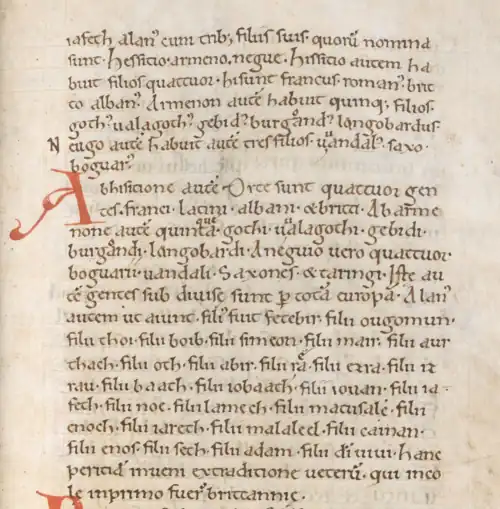 iafeth alanꝰ cum tribꝫ filiis suis. quorū nomina
sunt. hessitio. armeno. negue. hissitio autem ha
buit filios quattuor. hi sunt francus. romanꝰ. brit
to albanꝰ. Armenon autē habuit quinqꝫ filios.
gothꝰ. ualagothꝰ. gebidꝰ. burgandꝰ. longobardus.
Neugo autē habuit autē tres filios. uandalꝰ. saxo.
boguarꝰ.
Ab hisicione autē orte sunt quattuor gen
tes. franci. latini. albani. & britti. Ab arme
none autē quinta. gothi. ualagothi. gebidi.
burgondi. longobardi. A neguio uero quattuor.
boguarii. uandali. Saxones. & taringi. Iste au
tē gentes sub diuise sunt ꝑ totā europā. Alanꝰ
autem ut aiunt. filiꝰ fuit fetebir. filii ougomun.
filii thoi. filii boib. filii simeon. filii mair. filii aur
thach. filii oth. filii abir. filii ra. filii ezra. filii iz
rau. filii baath. filii iobaath. filii iouan. filii ia
feth. filii noe. filii lamech. filii matusalē. filii
enoch. filii iareth. filii malaleel. filii cainan.
filii enos. filii seth. filii adam. filii dī uiui. hanc
peritiā inueni ex traditione ueterū. qui inco
le in primo fuerꝰ brittannie.